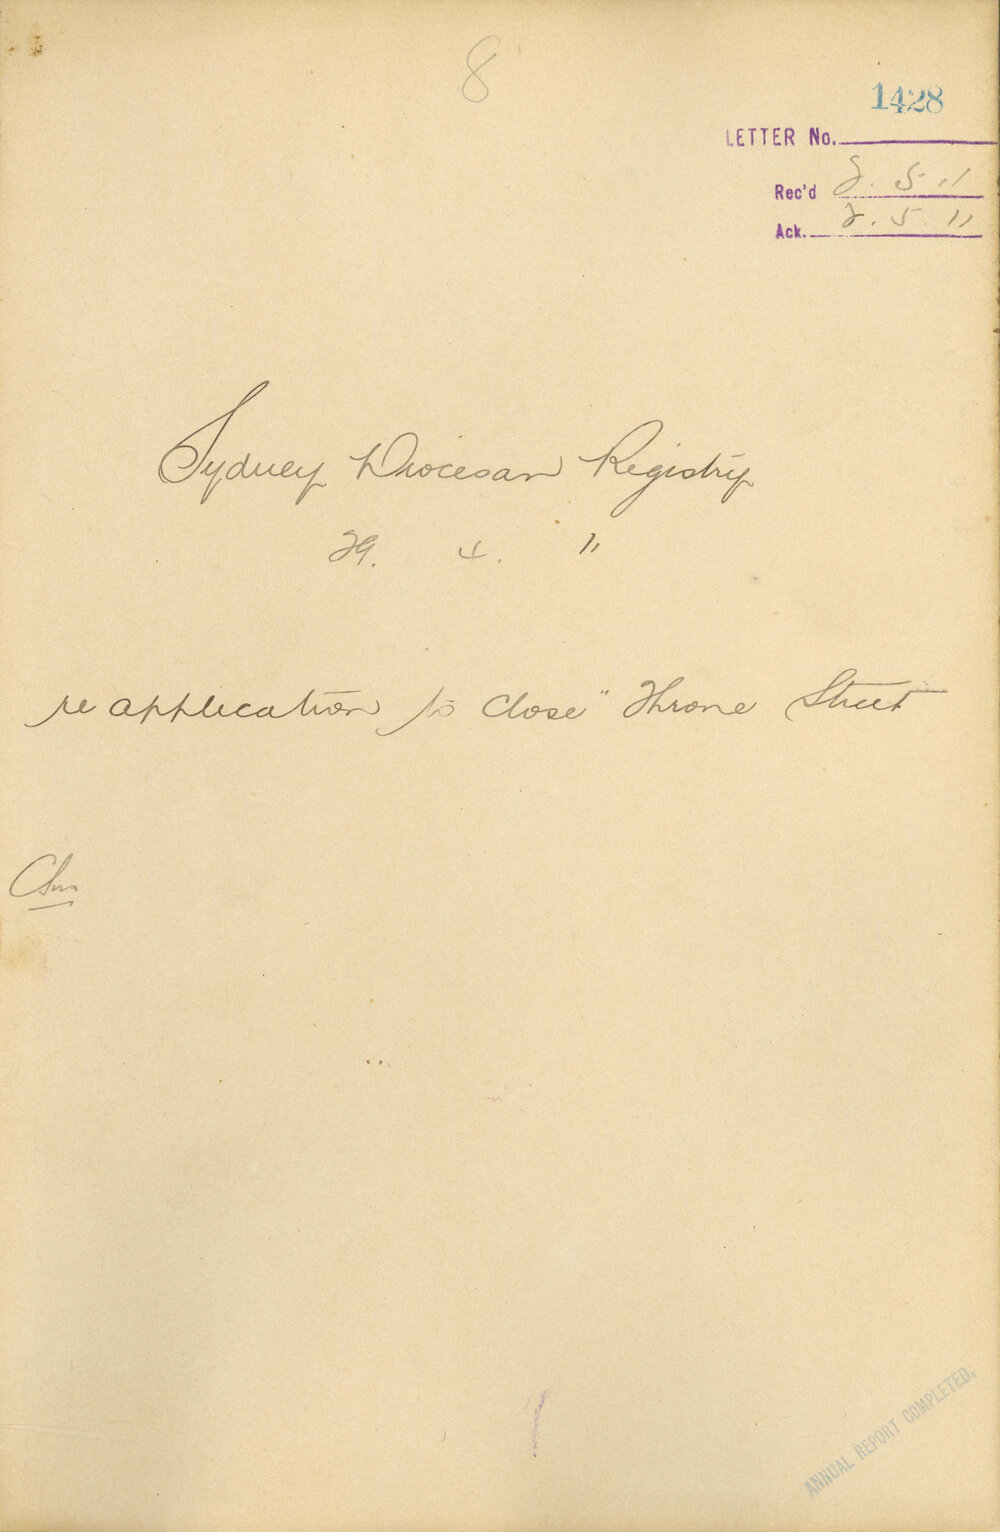 8
1428
LETTER No.
Rec'd 2. 5 11
Ack. 2. 5 11
Sydney Diocesan Registry
29. 4. 11
re application to close "Throne Street
ANNUAL REPORT COMPLETED.